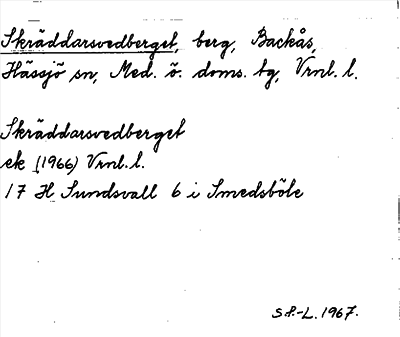 Skräddarsvedberget, berg, Backås,
Hässjö sn, Med. ö. doms. tg, Vrnl. l.
Skräddarsvedberget
ek (1966) Vrnl. l.
17 H Sundsvall 6 i Smedsböle
S.P.-L. 1967.